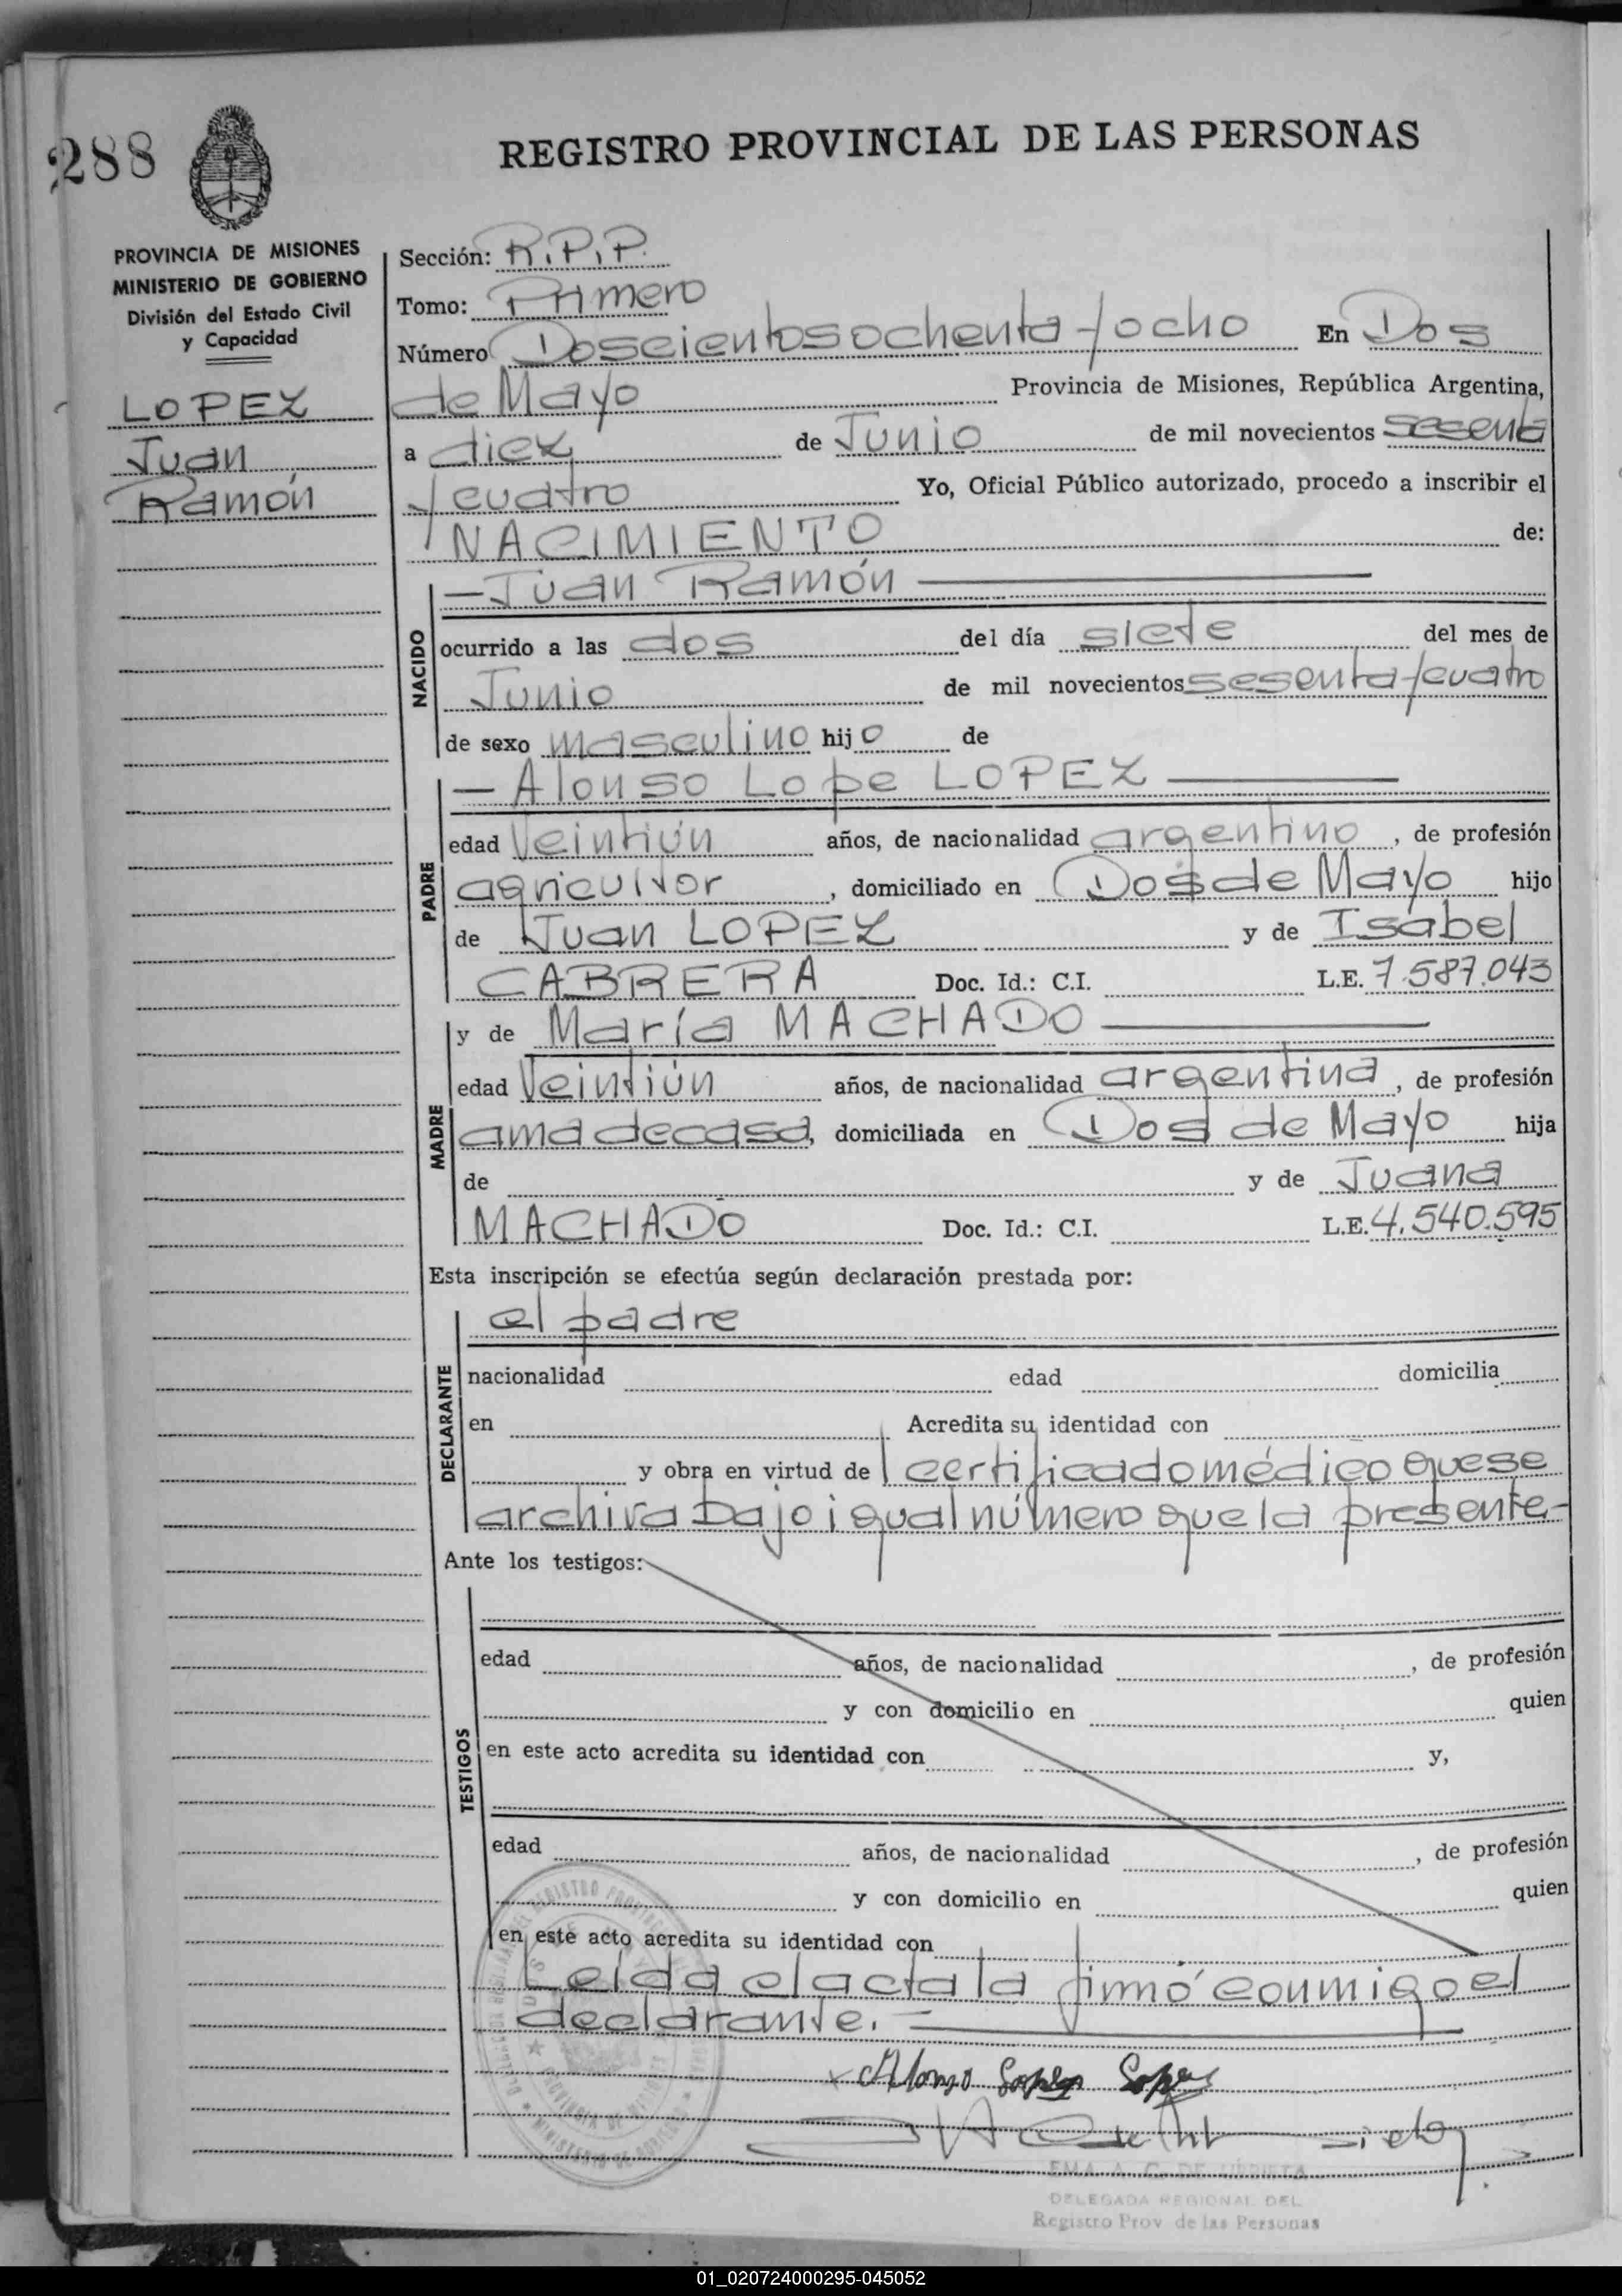 288
REGISTRO PROVINCIAL DE LAS PERSONAS
PROVINCIA DE MISIONES
MINISTERIO DE GOBIERNO
División del Estado Civil
y Capacidad
LOPEZ
Juan
Ramón
Sección: R.P.P.
Tomo: Primero
Número Doscientos ochenta y ocho En Dos
de Mayo Provincia de Misiones, República Argentina,
a diez de Junio de mil novecientos sesenta
y cuatro Yo, Oficial Público autorizado, procedo a inscribir el
NACIMIENTO de:
NACIDO
—Juan Ramón
ocurrido a las dos del día siete del mes de
Junio de mil novecientos sesenta y cuatro
de sexo masculino hijo de
PADRE
— Alonso Lope LOPEZ
edad Veintiún años, de nacionalidad argentino, de profesión
agricultor, domiciliado en Dos de Mayo hijo
de Juan LOPEZ y de Isabel
CABRERA Doc. Id.: C.I. L.E. 7.587.043
MADRE
y de María MACHADO
edad Veintiún años, de nacionalidad argentina, de profesión
ama de casa, domiciliada en Dos de Mayo hija
de y de Juana
MACHADO Doc. Id.: C.I. L.E. 4.540.595
Esta inscripción se efectúa según declaración prestada por:
DECLARANTE
el padre
nacionalidad edad domicilia
en Acredita su identidad con
y obra en virtud de certificado médico que se
archiva bajo igual número que la presente-
Ante los testigos:
TESTIGOS
edad años, de nacionalidad , de profesión
y con domicilio en quien
en este acto acredita su identidad con y,
edad años, de nacionalidad , de profesión
y con domicilio en quien
en este acto acredita su identidad con
Leida el acta la firmó conmigo el
declarante.
x Alonzo Lopez Lopez
EMA A. C. DE URRIETA
DELEGADA REGIONAL DEL
Registro Prov. de las Personas
01_020724000295-045052